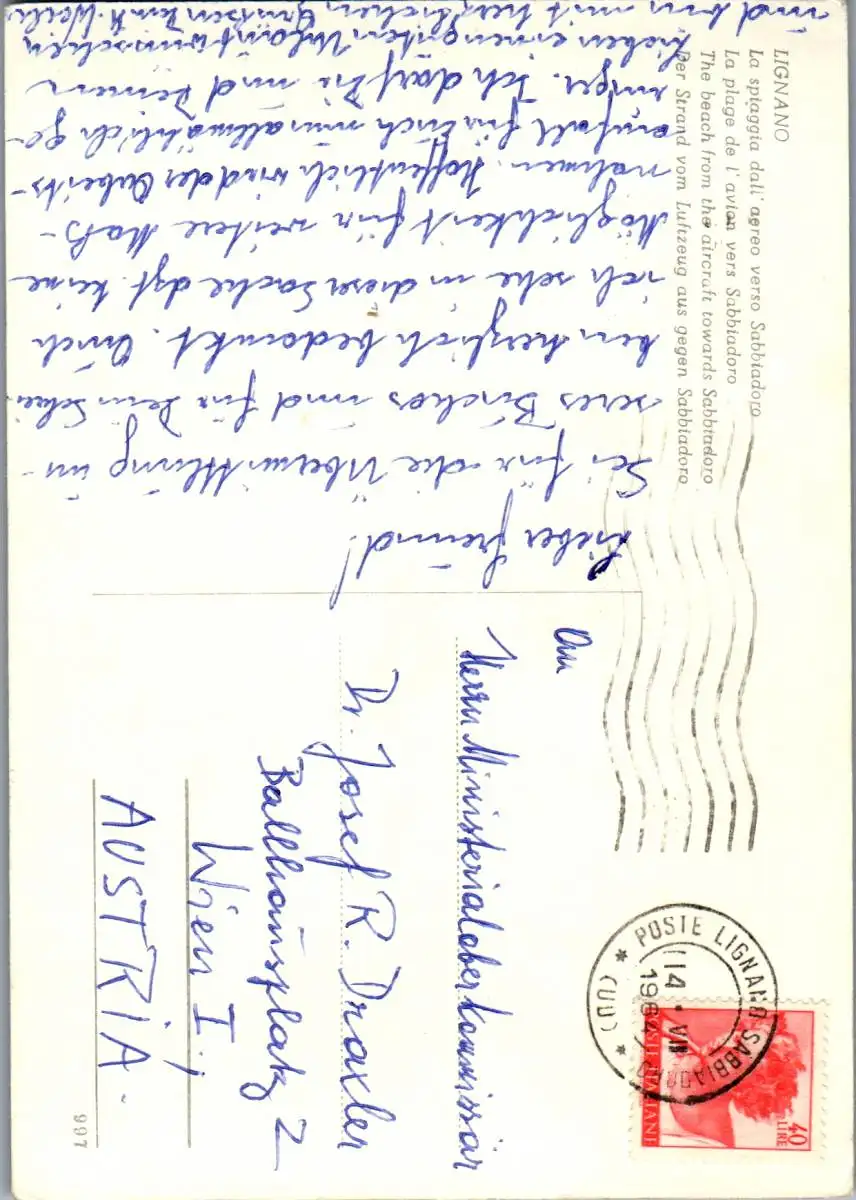 LIGNANO
La spiaggia dall' aereo verso Sabbiadoro
La plage de l'avion vers Sabbiadoro
The beach from the aircraft towards Sabbiadoro
Der Strand vom Luftzeug aus gegen Sabbiadoro
Lieber Freund!
Sei für die Übermittlung un-
seres Büchos und für Dein Schrei-
ben herzlich bedankt. Auch
ich sehe in dieser Sache dzt. keine
Möglichkeit für weitere Maß-
nahmen. Hoffentlich wird der Arbeits-
anfall für Euch nun allmählich ge-
ringer. Ich darf Dir und Deinen
Lieben einen guten Urlaub wünschen
und bin mit herzlichen Grüßen Dein
An
Herrn Ministerialoberkommissär
Dr. Josef R. Draxler
Ballhausplatz 2
Wien I.;
AUSTRIA.
POSTE LIGNANO SABBIADORO
(UD)
14 VIII
1964
POSTE ITALIANE
40
LIRE
997